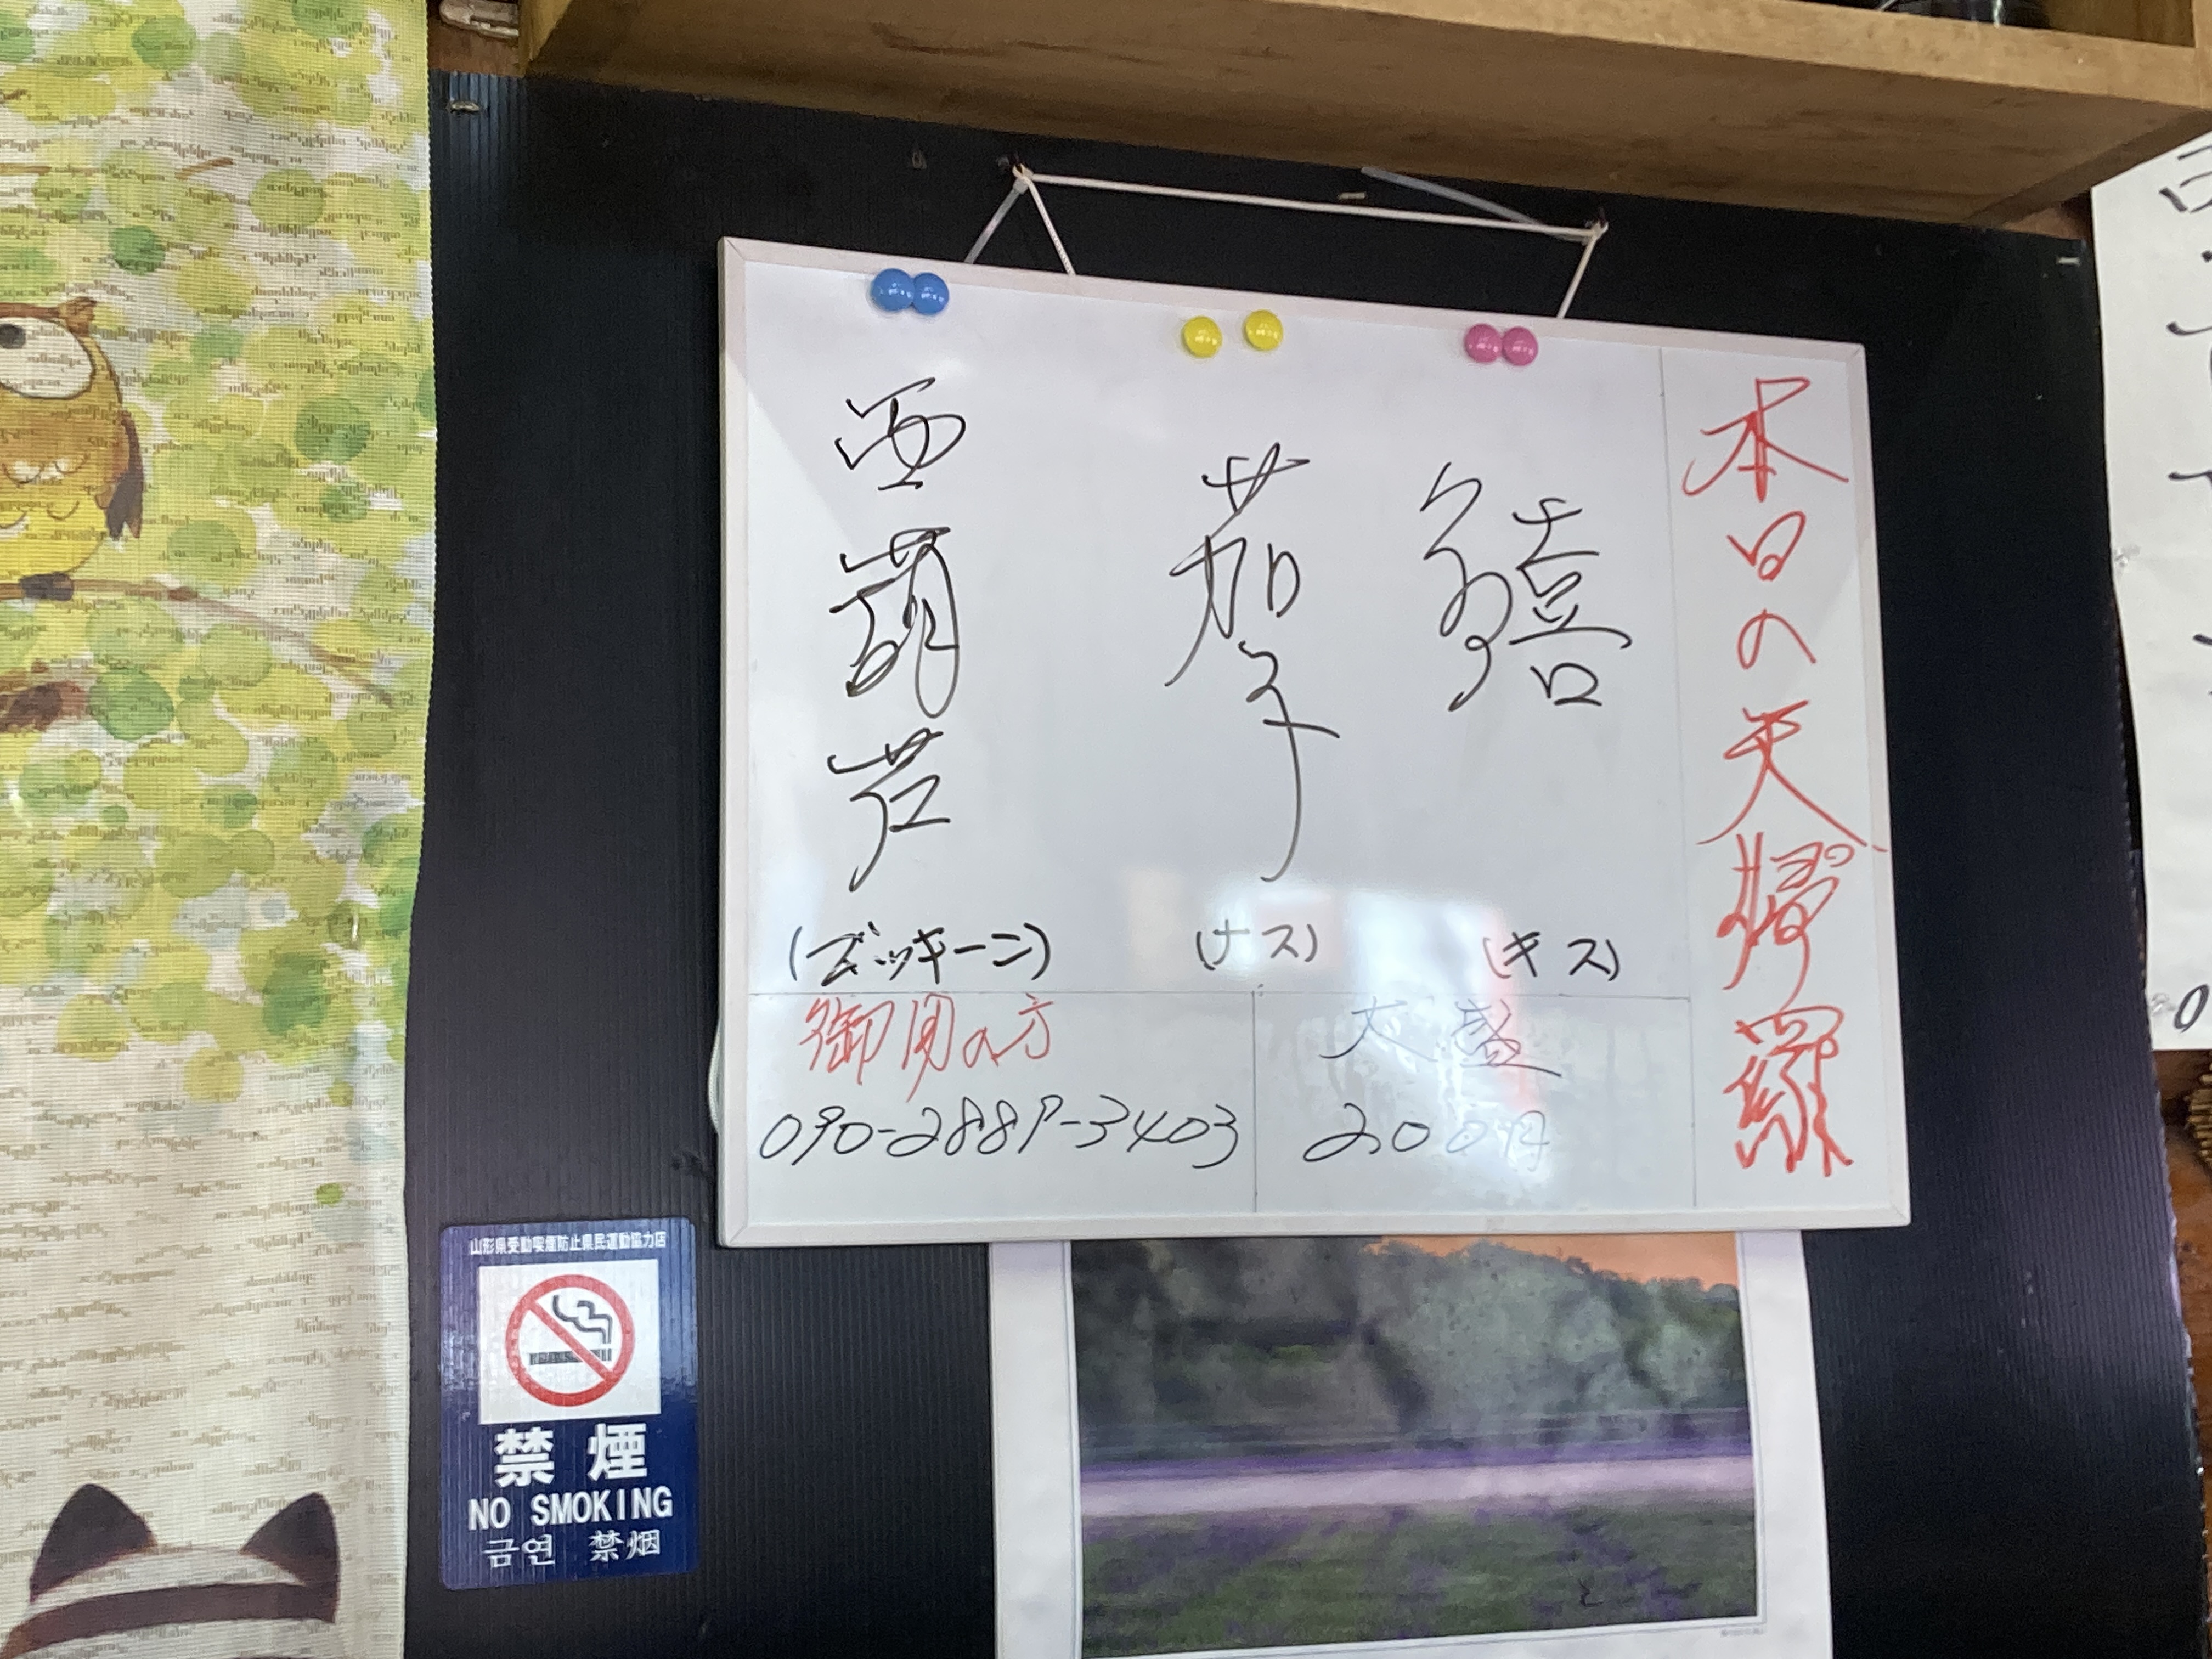 本日の天婦羅
鱚
茄子
西葫芦
(キス)
(ナス)
(ズッキーニ)
大盛
200円
御用の方
090-2889-3403
山形県受動喫煙防止県民運動協力店
禁煙
NO SMOKING
금연 禁烟